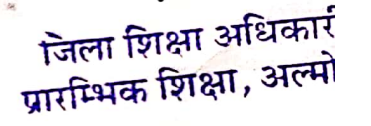 जिला शिक्षा अधिकार
प्रारम्भिक शिक्षा, अल्मो